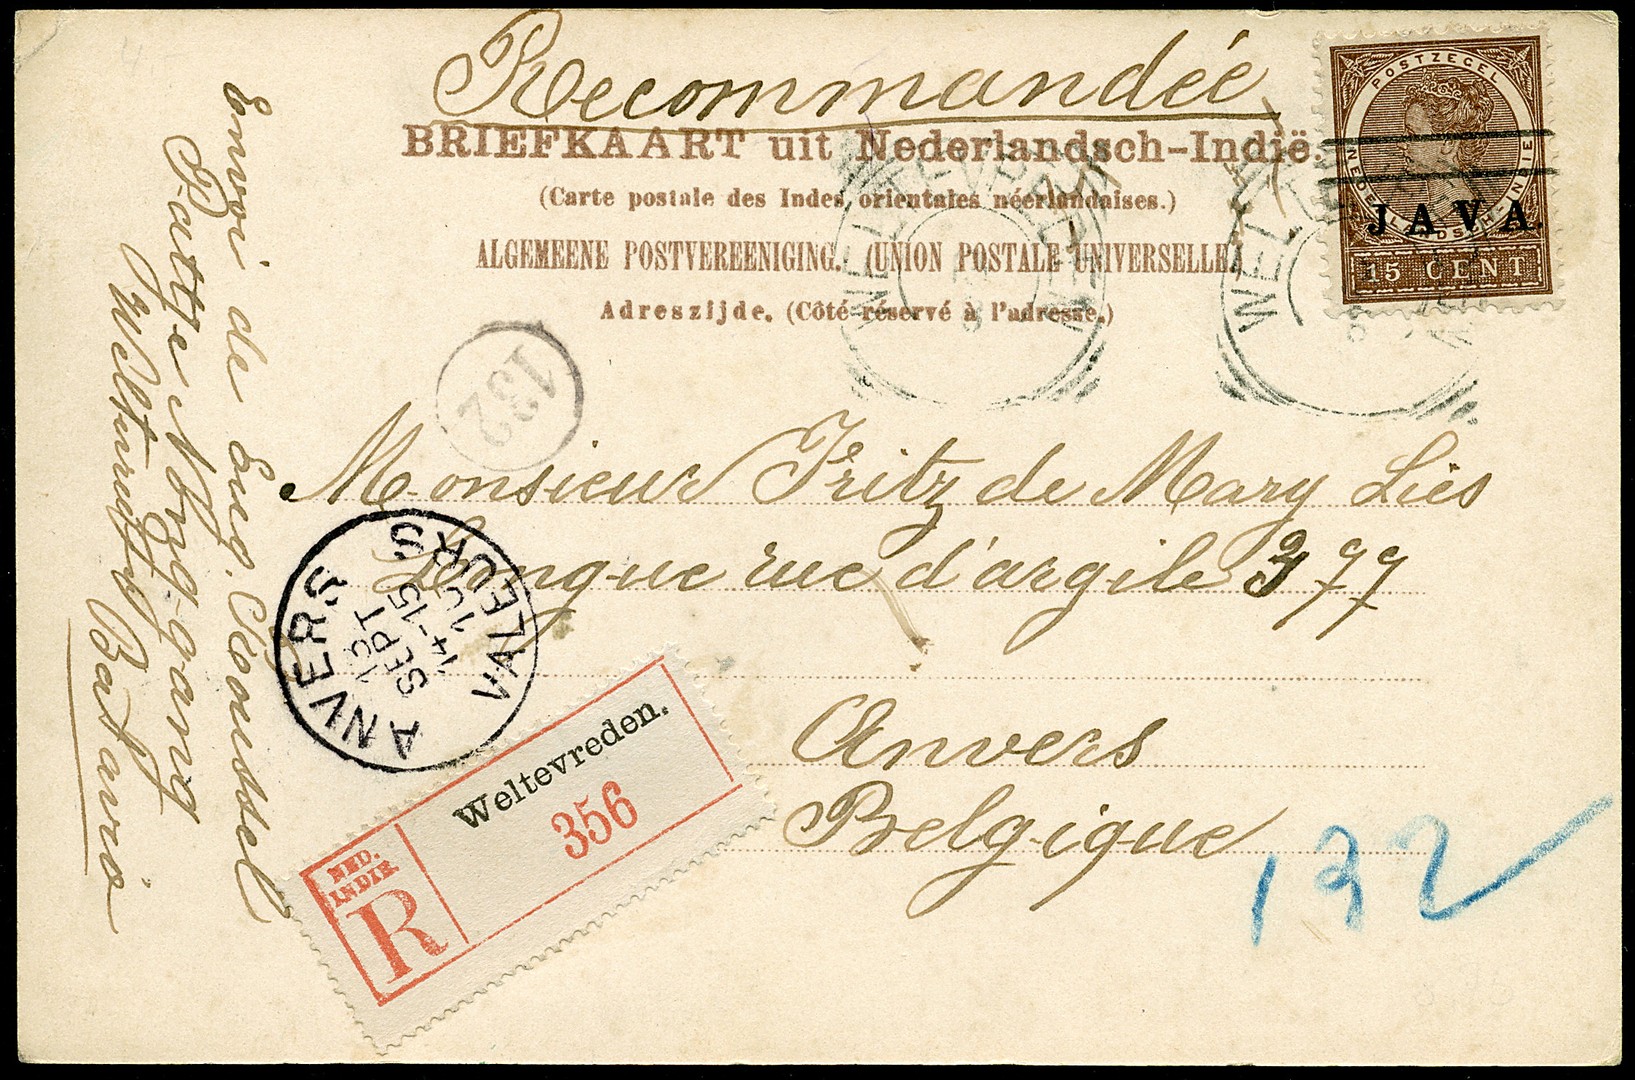 Recommandée
BRIEFKAART uit Nederlandsch-Indië.
(Carte postale des Indes orientales néerlandaises.)
ALGEMEENE POSTVEREENIGING. (UNION POSTALE UNIVERSELLE)
Adreszijde. (Côté réservé à l'adresse.)
POSTZEGEL
NEDERLANDSCH-INDIE
JAVA.
15 CENT
WELTEVREDEN
WELTEVREDEN
132
Monsieur Fritz de Mary Liès
Longue rue d'argile 377
Anvers
Belgique
132
ANVERS
13 SEPT
14-15
10
VALEURS
Weltevreden.
356
NED.
INDIE
R
Envoi de Eug.
Batty Nogg-gang
Weltevreden Batavia